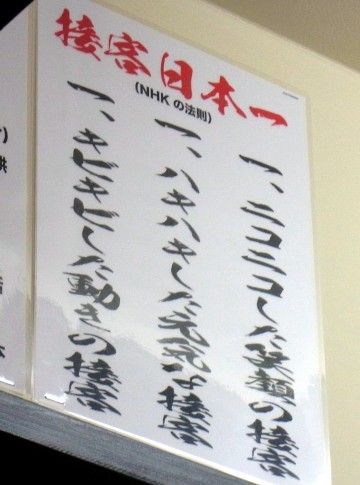 接客日本一
(NHKの法則)
一、ニコニコした笑顔の接客
一、ハキハキした元気な接客
一、キビキビした動きの接客